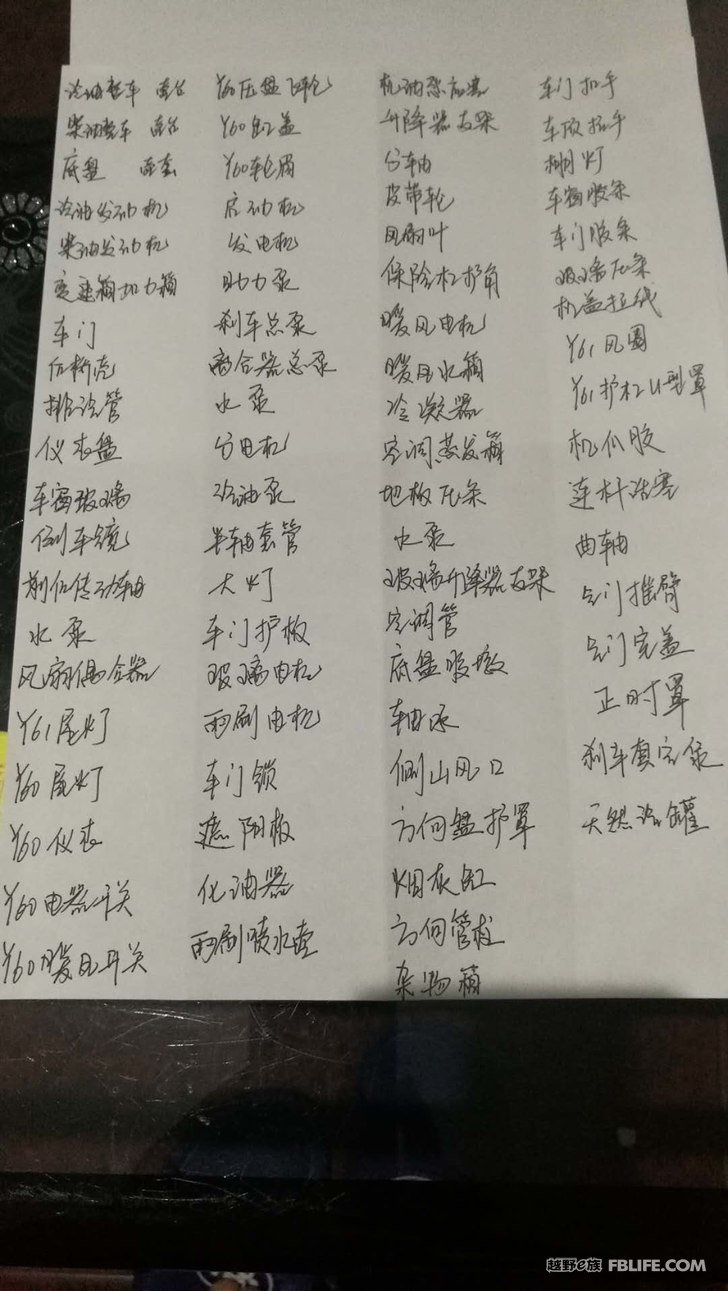 汽油整车 壹台
柴油整车 壹台
底盘 壹套
汽油发动机
柴油发动机
变速箱加力箱
车门
后桥壳
排汽管
仪表盘
车窗玻璃
倒车镜
前后传动轴
水泵
风扇偶合器
Y61尾灯
Y60尾灯
Y60仪表
Y60电器开关
Y60暖风开关
Y60压盘飞轮
Y60缸盖
Y60轮眉
启动机
发电机
助力泵
刹车总泵
离合器总泵
水泵
分电机
汽油泵
半轴套管
大灯
车门护板
玻璃电机
雨刷电机
车门锁
遮阳板
化油器
雨刷喷水壶
机油泵
升降器支架
分轴
皮带轮
风扇叶
保险杠护角
暖风电机
暖风水箱
冷凝器
空调蒸发箱
地板压条
水泵
玻璃升降器支架
空调管
底盘胶墩
轴承
侧出风口
方向盘护罩
烟灰缸
方向管柱
杂物箱
车门扣手
车顶拉手
棚灯
车窗胶条
车门胶条
玻璃压条
机盖拉线
Y61风圈
Y61护杠U型罩
机爪胶
连杆活塞
曲轴
气门推臂
气门室盖
正时罩
刹车真空泵
天然汽罐
越野e族 FBLIFE.COM